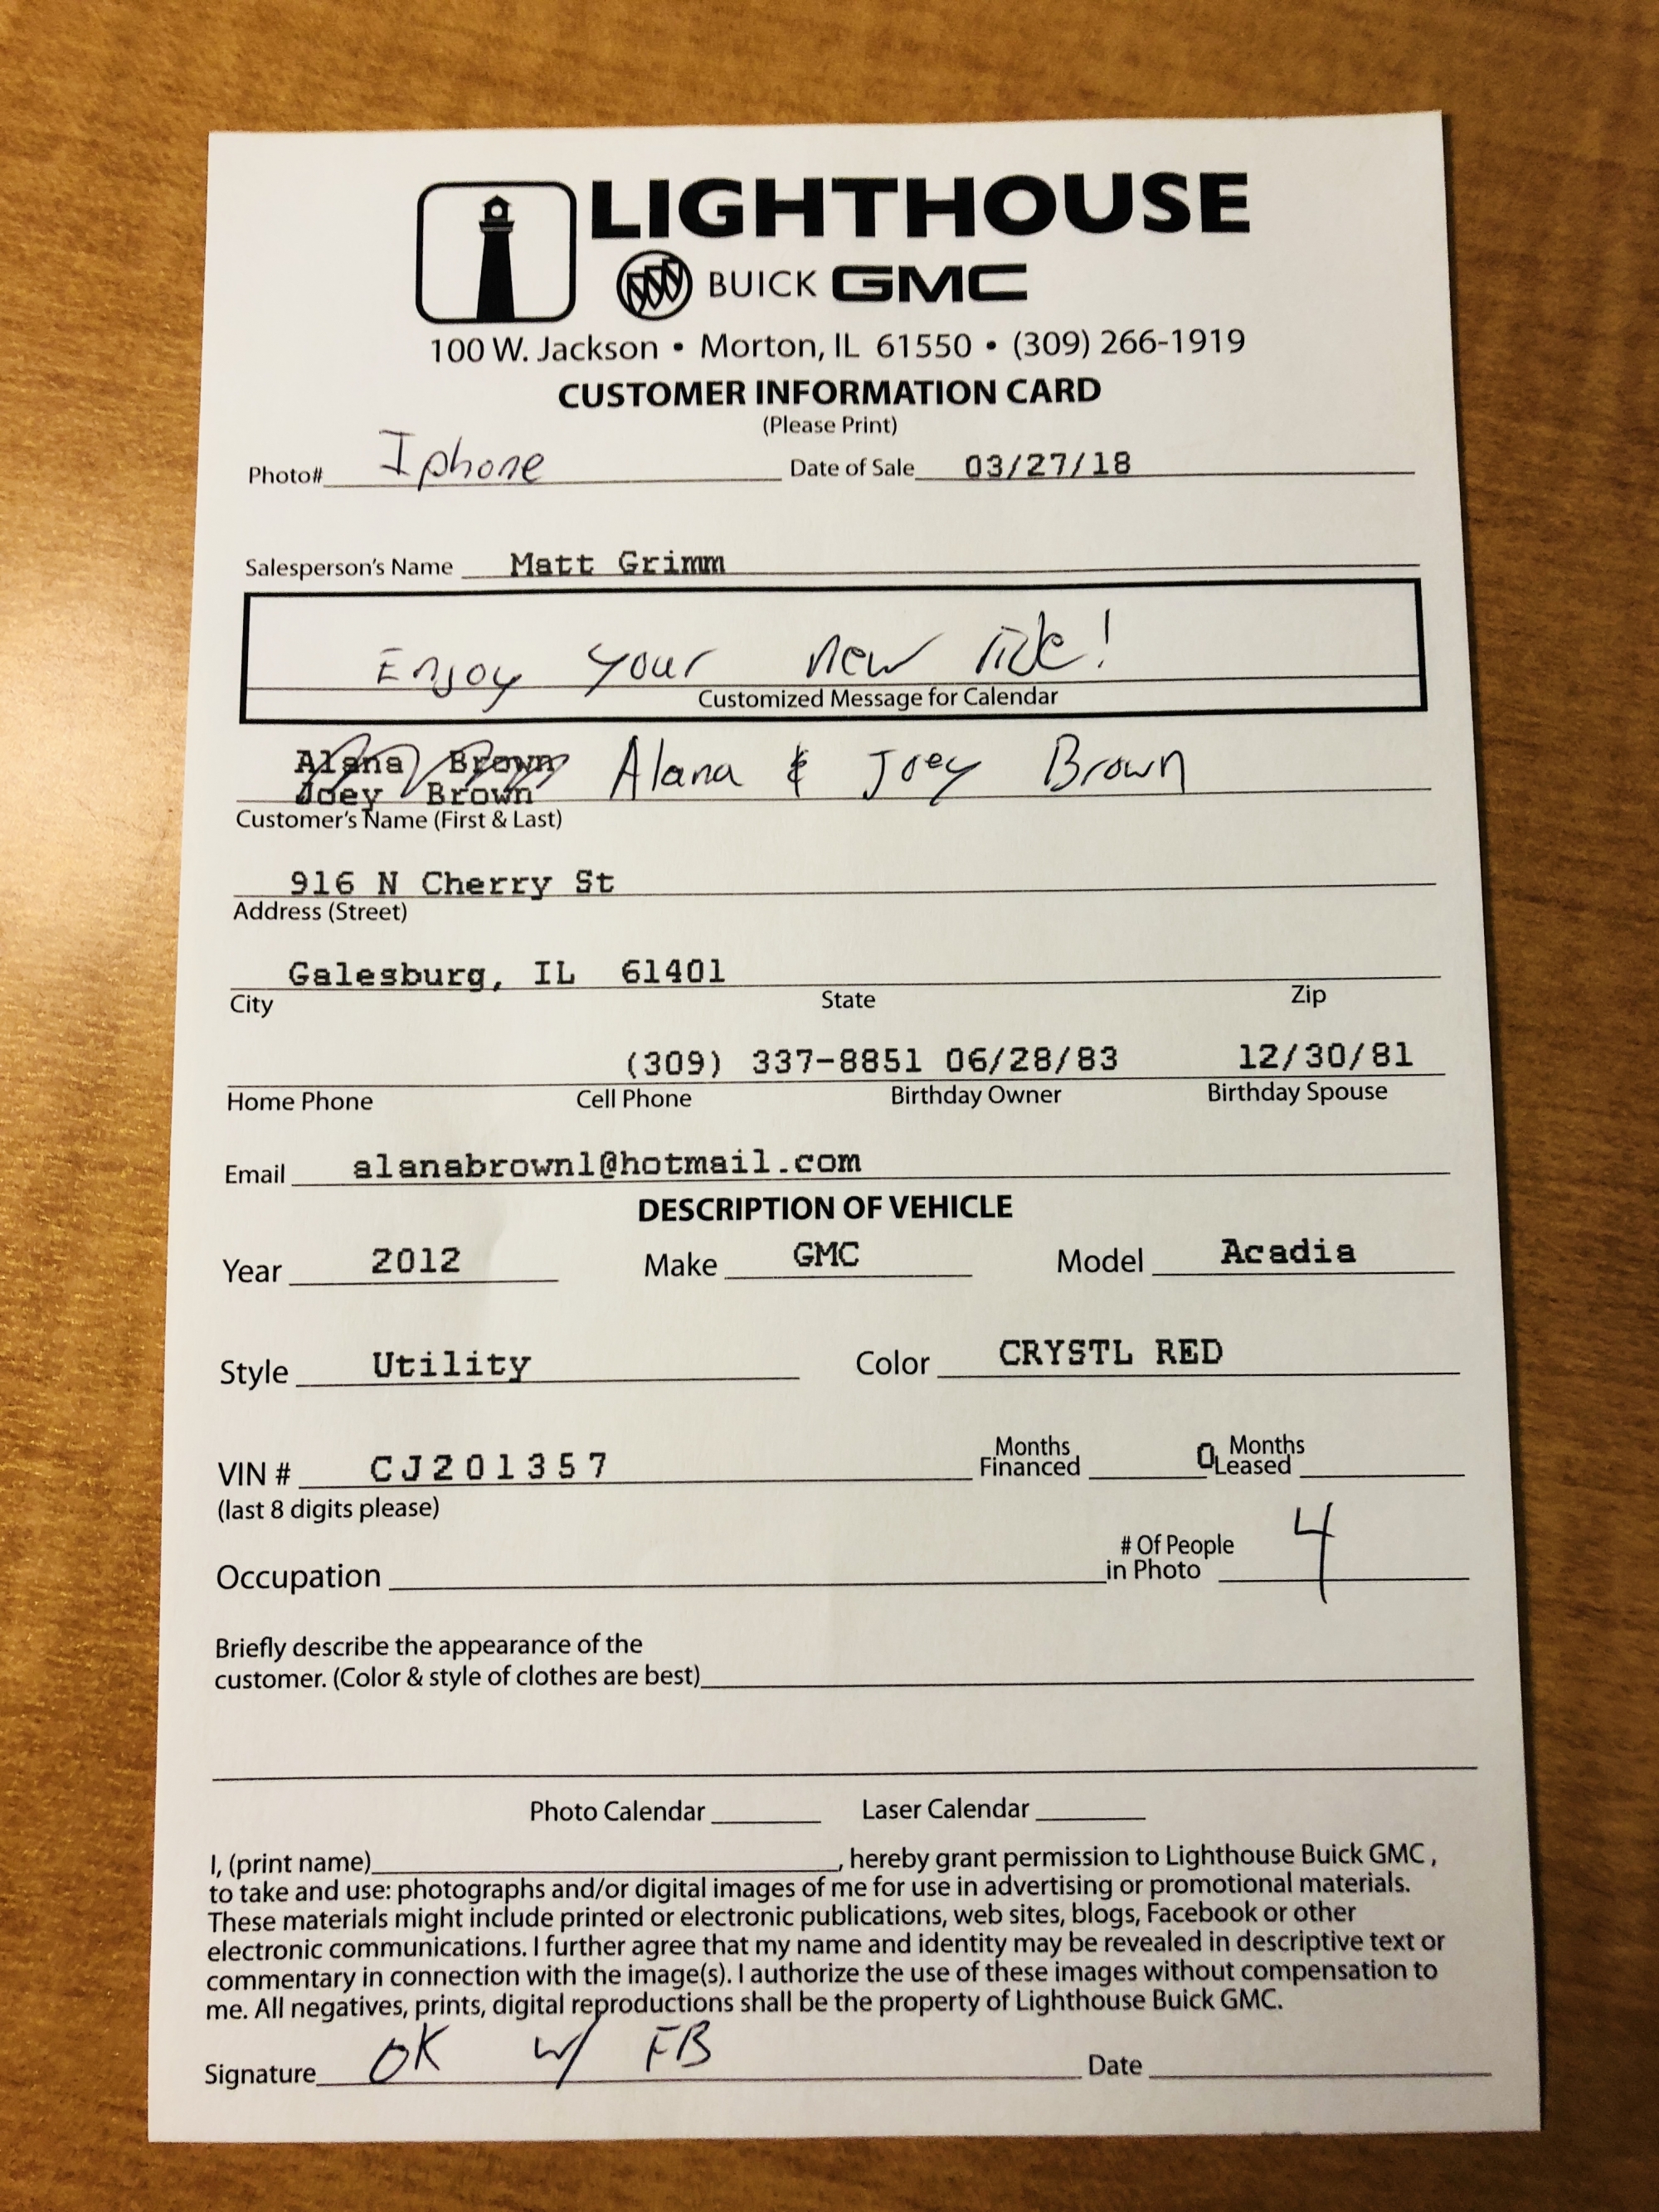 LIGHTHOUSE
BUICK GMC
100 W. Jackson • Morton, IL 61550 • (309) 266-1919
CUSTOMER INFORMATION CARD
(Please Print)
Photo# Iphone Date of Sale 03/27/18
Salesperson's Name Matt Grimm
Enjoy your new ride!
Customized Message for Calendar
Alana Brown
Joey Brown Alana & Joey Brown
Customer's Name (First & Last)
916 N Cherry St
Address (Street)
Galesburg, IL 61401
City State Zip
(309) 337-8851 06/28/83 12/30/81
Home Phone Cell Phone Birthday Owner Birthday Spouse
Email alanabrown1@hotmail.com
DESCRIPTION OF VEHICLE
Year 2012 Make GMC Model Acadia
Style Utility Color CRYSTL RED
VIN # CJ201357 Months Financed 0 Months Leased
(last 8 digits please)
Occupation # Of People in Photo 4
Briefly describe the appearance of the
customer. (Color & style of clothes are best)
Photo Calendar Laser Calendar
I, (print name) , hereby grant permission to Lighthouse Buick GMC ,
to take and use: photographs and/or digital images of me for use in advertising or promotional materials.
These materials might include printed or electronic publications, web sites, blogs, Facebook or other
electronic communications. I further agree that my name and identity may be revealed in descriptive text or
commentary in connection with the image(s). I authorize the use of these images without compensation to
me. All negatives, prints, digital reproductions shall be the property of Lighthouse Buick GMC.
Signature OK w/ FB Date